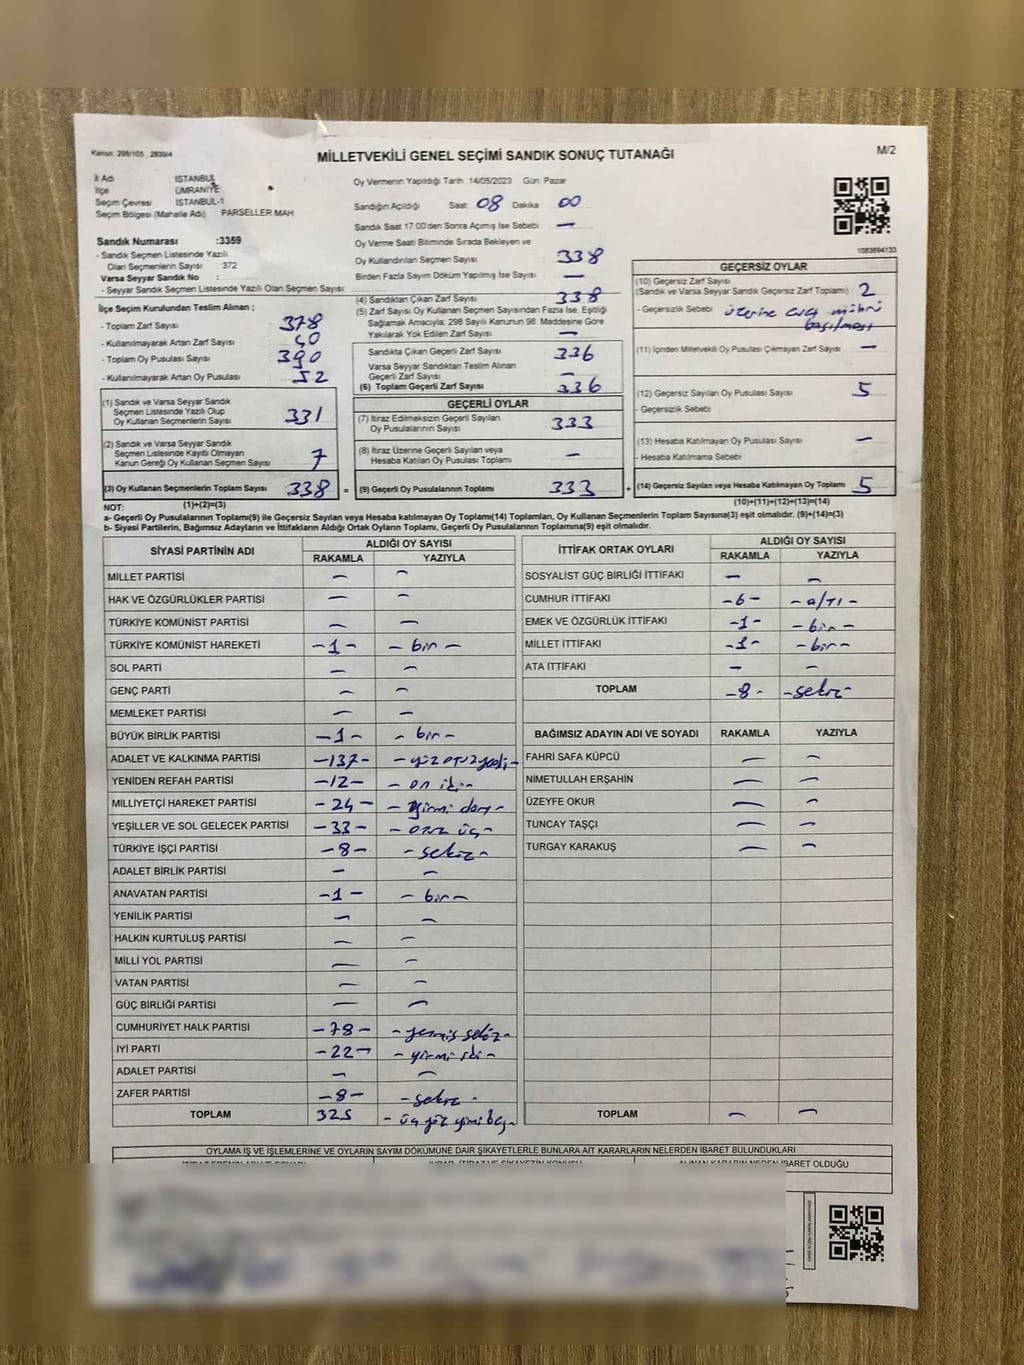 Kanun: 298/105 , 2839/4
MİLLETVEKİLİ GENEL SEÇİMİ SANDIK SONUÇ TUTANAĞI
M/2
İl Adı İSTANBUL
İlçe ÜMRANİYE
Seçim Çevresi İSTANBUL-1
Seçim Bölgesi (Mahalle Adı) PARSELLER MAH.
Oy Vermenin Yapıldığı Tarih 14/05/2023 Gün Pazar
Sandığın Açıldığı Saat 08 Dakika 00
Sandık Saat 17.00'den Sonra Açımış İse Sebebi —
Sandık Numarası :3359
- Sandık Seçmen Listesinde Yazılı
Olan Seçmenlerin Sayısı : 372
Varsa Seyyar Sandık No :
- Seyyar Sandık Seçmen Listesinde Yazılı Olan Seçmen Sayısı:
Oy Verme Saati Bitiminde Sırada Bekleyen ve
Oy Kullandırılan Seçmen Sayısı 338
Birden Fazla Sayım Döküm Yapılmış İse Sayısı —
1083694133
İlçe Seçim Kurulundan Teslim Alınan ;
- Toplam Zarf Sayısı 378
- Kullanılmayarak Artan Zarf Sayısı 40
- Toplam Oy Pusulası Sayısı 390
- Kullanılmayarak Artan Oy Pusulası 52
(1) Sandık ve Varsa Seyyar Sandık
Seçmen Listesinde Yazılı Olup
Oy Kullanan Seçmenlerin Sayısı 331
(2) Sandık ve Varsa Seyyar Sandık
Seçmen Listesinde Kayıtlı Olmayan
Kanun Gereği Oy Kullanan Seçmen Sayısı 7
(3) Oy Kullanan Seçmenlerin Toplam Sayısı 338 =
(1)+(2)=(3)
(4) Sandıktan Çıkan Zarf Sayısı 338
(5) Zarf Sayısı Oy Kullanan Seçmen Sayısından Fazla İse, Eşitliği
Sağlamak Amacıyla; 298 Sayılı Kanunun 98. Maddesine Göre
Yakılarak Yok Edilen Zarf Sayısı —
Sandıkta Çıkan Geçerli Zarf Sayısı 336
Varsa Seyyar Sandıktan Teslim Alınan
Geçerli Zarf Sayısı —
(6) Toplam Geçerli Zarf Sayısı 336
GEÇERLİ OYLAR
(7) İtiraz Edilmeksizin Geçerli Sayılan
Oy Pusulalarının Sayısı 333
(8) İtiraz Üzerine Geçerli Sayılan veya
Hesaba Katılan Oy Pusulası Toplamı —
(9) Geçerli Oy Pusulalarının Toplamı 333 +
GEÇERSİZ OYLAR
(10) Geçersiz Zarf Sayısı
(Sandık ve Varsa Seyyar Sandık Geçersiz Zarf Toplamı) 2
- Geçersizlik Sebebi üzerine evet mührü
basılması
(11) İçinden Milletvekili Oy Pusulası Çıkmayan Zarf Sayısı —
(12) Geçersiz Sayılan Oy Pusulası Sayısı 5
- Geçersizlik Sebebi
(13) Hesaba Katılmayan Oy Pusulası Sayısı —
- Hesaba Katılmama Sebebi
(14) Geçersiz Sayılan veya Hesaba Katılmayan Oy Toplamı 5
(10)+(11)+(12)+(13)=(14)
NOT:
a- Geçerli Oy Pusulalarının Toplamı(9) ile Geçersiz Sayılan veya Hesaba katılmayan Oy Toplamı(14) Toplamları, Oy Kullanan Seçmenlerin Toplam Sayısına(3) eşit olmalıdır. (9)+(14)=(3)
b- Siyasi Partilerin, Bağımsız Adayların ve İttifakların Aldığı Ortak Oyların Toplamı, Geçerli Oy Pusulalarının Toplamına(9) eşit olmalıdır.
SİYASİ PARTİNİN ADI ALDIĞI OY SAYISI
RAKAMLA YAZIYLA
MİLLET PARTİSİ — —
HAK VE ÖZGÜRLÜKLER PARTİSİ — —
TÜRKİYE KOMÜNİST PARTİSİ — —
TÜRKİYE KOMÜNİST HAREKETİ -1- - bir -
SOL PARTİ — —
GENÇ PARTİ — —
MEMLEKET PARTİSİ — —
BÜYÜK BİRLİK PARTİSİ -1- - bir -
ADALET VE KALKINMA PARTİSİ -137- - yüz otuz yedi -
YENİDEN REFAH PARTİSİ -12- - on iki -
MİLLİYETÇİ HAREKET PARTİSİ -24- - yirmi dört -
YEŞİLLER VE SOL GELECEK PARTİSİ -33- - otuz üç -
TÜRKİYE İŞÇİ PARTİSİ -8- - sekiz -
ADALET BİRLİK PARTİSİ — —
ANAVATAN PARTİSİ -1- - bir -
YENİLİK PARTİSİ — —
HALKIN KURTULUŞ PARTİSİ — —
MİLLİ YOL PARTİSİ — —
VATAN PARTİSİ — —
GÜÇ BİRLİĞİ PARTİSİ — —
CUMHURİYET HALK PARTİSİ -78- - yetmiş sekiz -
İYİ PARTİ -22- - yirmi iki -
ADALET PARTİSİ — —
ZAFER PARTİSİ -8- - sekiz -
TOPLAM 325 - üç yüz yirmi beş -
İTTİFAK ORTAK OYLARI ALDIĞI OY SAYISI
RAKAMLA YAZIYLA
SOSYALİST GÜÇ BİRLİĞİ İTTİFAKI — —
CUMHUR İTTİFAKI -6- - altı -
EMEK VE ÖZGÜRLÜK İTTİFAKI -1- - bir -
MİLLET İTTİFAKI -1- - bir -
ATA İTTİFAKI — —
TOPLAM -8- - sekiz -
BAĞIMSIZ ADAYIN ADI VE SOYADI RAKAMLA YAZIYLA
FAHRİ SAFA KÜPCÜ — —
NİMETULLAH ERŞAHİN — —
ÜZEYFE OKUR — —
TUNCAY TAŞÇI — —
TURGAY KARAKUŞ — —
TOPLAM — —
OYLAMA İŞ VE İŞLEMLERİNE VE OYLARIN SAYIM DÖKÜMÜNE DAİR ŞİKAYETLERLE BUNLARA AİT KARARLARIN NELERDEN İBARET BULUNDUKLARI
ALINAN KARARIN NEDEN İBARET OLDUĞU